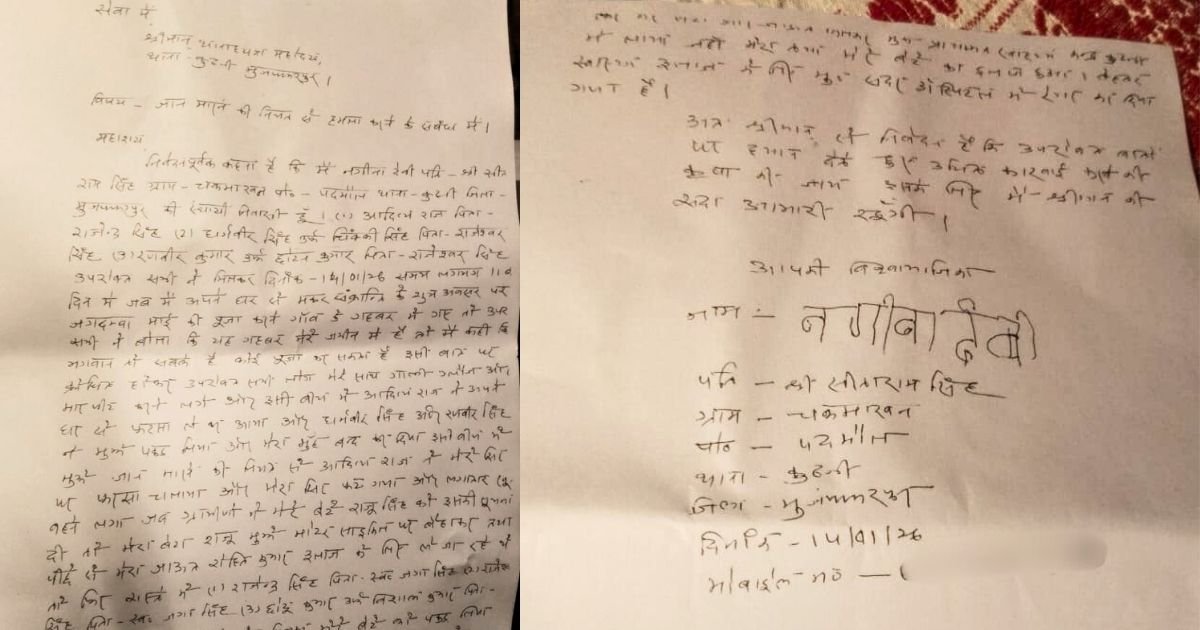 सेवा में
श्रीमान् थानाध्यक्ष महोदय,
थाना - कुढ़नी मुजफ्फरपुर।
विषय - जान मारने की नियत से हमला करने के संबंध में।
महाशय,
निवेदनपूर्वक कहना है कि मैं नगीना देवी पति - श्री सीता
राम सिंह ग्राम - चकमाखन पो० - पदमौल थाना - कुढ़नी जिला -
मुजफ्फरपुर की स्थायी निवासी हूँ। (1) आदित्य राज पिता -
राजेन्द्र सिंह (2) धर्मवीर सिंह उर्फ सिंह पिता - राजेश्वर
सिंह (3) रणवीर कुमार उर्फ कुमार पिता - राजेश्वर सिंह
उपरोक्त सभी ने मिलकर दिनांक - 14/01/26 समय लगभग 11 बजे
दिन में जब मैं अपने घर से मकर संक्रान्ति के शुभ अवसर पर
जगदम्बा माई की पूजा करने गाँव के गहबर में गए तो उपरोक्त
सभी ने बोला कि यह गहबर मेरे जमीन में है तो मैं कही कि
भगवान तो सबके है कोई पूजा कर सकता है इसी बात पर
क्रोधित होकर उपरोक्त सभी लोग मेरे साथ गाली गलौज और
मारपीट करने लगे और इसी बीच में आदित्य राज ने अपने
घर से फरसा ले कर आया और धर्मवीर सिंह और रणवीर सिंह
ने मुझे पकड़ लिया और मेरा मुँह बंद कर दिया इसी बीच में
मुझे जान मारने की नियत से आदित्य राज ने मेरे सिर
पर फरसा चलाया और मेरा सिर फट गया और लगातार खून
बहने लगा जब ग्रामीणों ने मेरे बेटे राजू सिंह को इसकी सूचना
दी तो मेरा बेटा राजू मुझे मोटर साइकिल पर बैठाकर तथा
पीछे से मेरा रोहित कुमार इलाज के लिए ले जा रहे थे
तो फिर रास्ते में (1) राजेन्द्र सिंह पिता - स्व० जगा सिंह (2) राजेश्वर
सिंह पिता - स्व० जगा सिंह (3) छोटू कुमार उर्फ विशाल कुमार पिता -
मेरे बेटे को पकड़ लिया
में लाया जहाँ मेरा तथा मेरे बेटे का इलाज हुआ। बेहतर
स्वास्थ्य इलाज के लिए मुझे सदर हॉस्पिटल में रेफर कर दिया
गया है।
अतः श्रीमान् से निवेदन है कि उपरोक्त बातों
पर ध्यान देते हुए उचित कारवाई करने की
कृपा की जाय इसके लिए मैं श्रीमान की
सदा आभारी रहूँगी।
आपकी विश्वासभाजिका
नाम :- नगीना देवी
पति - श्री सीताराम सिंह
ग्राम - चकमाखन
पो० - पदमौल
थाना - कुढ़नी
जिला - मुजफ्फरपुर
दिनांक - 14/01/26
मोबाईल नं० - (